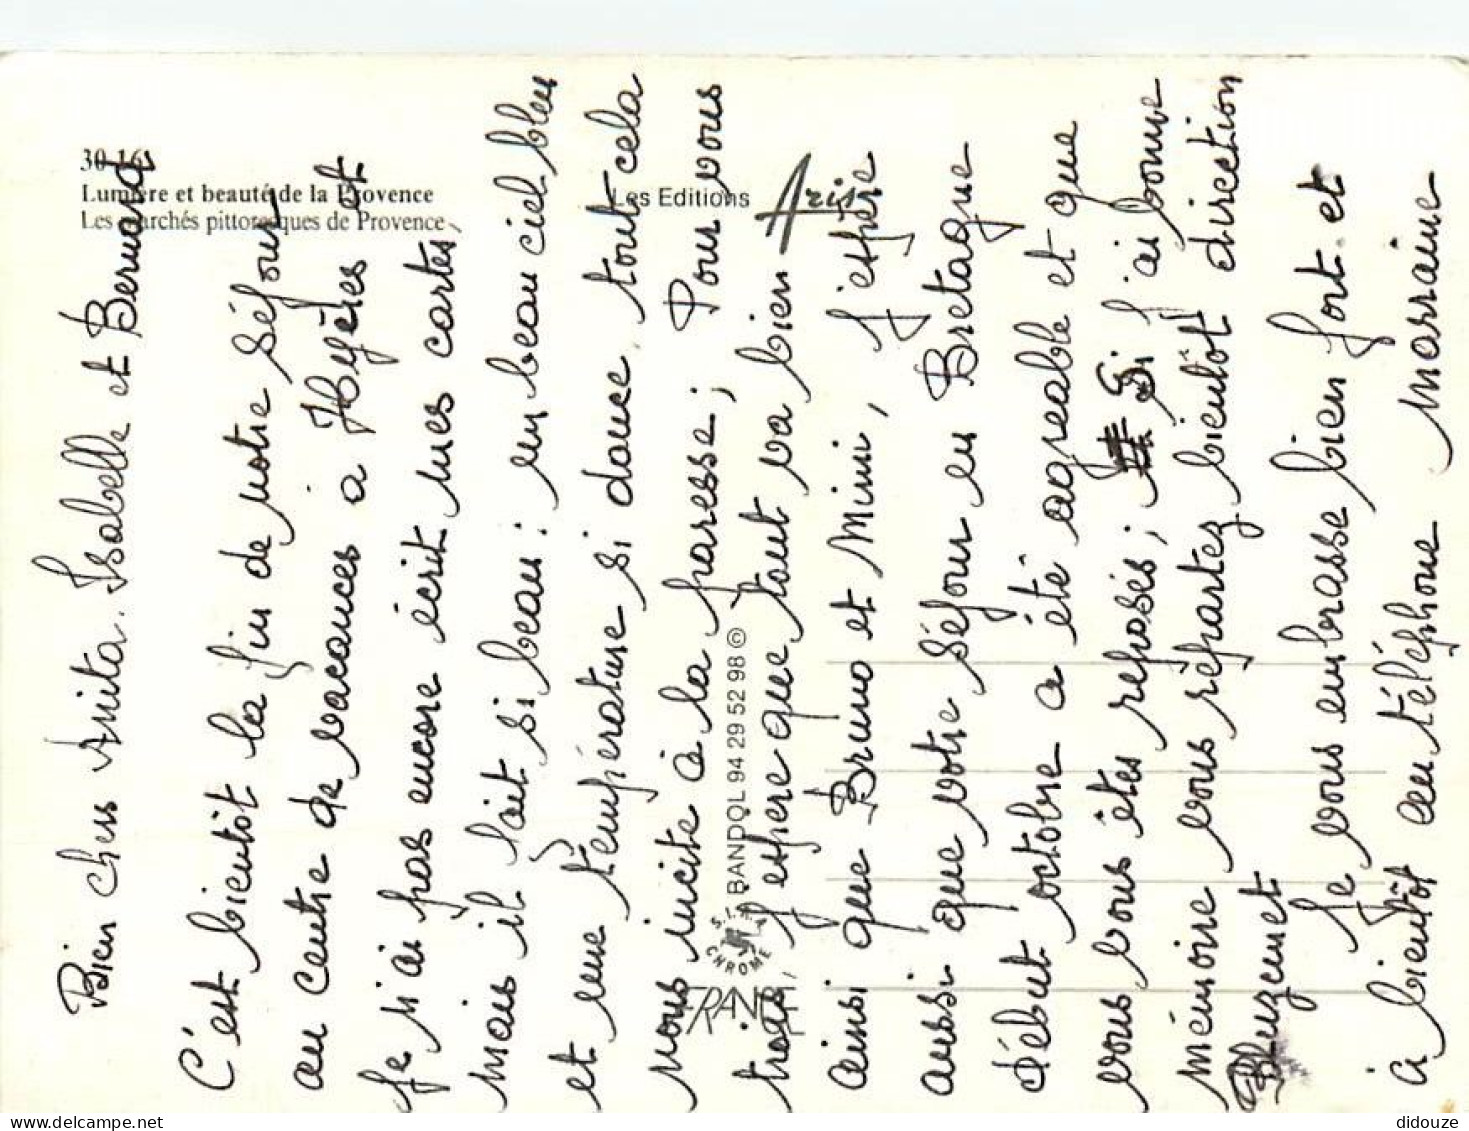 30-16
Lumière et beauté de la Provence
Les marchés pittoresques de Provence
Les Editions Aris
BANDOL 94 29 52 98 ©
S.I.R.A.
CHROME
FRANCE
Bien chers Anita. Isabelle et Bernard
C'est bientôt la fin de notre séjour
au centre de vacances à Hyères et
je n'ai pas encore écrit mes cartes,
mais il fait si beau : un beau ciel bleu
et une température si douce, tout cela
nous incite à la paresse ; Pour vous
trois, j'espère que tout va bien
ainsi que Bruno et Mimi, j'espère
aussi que votre séjour en Bretagne
début octobre a été agréable et que
vous vous êtes reposés ; Si j'ai bonne
mémoire vous repartez bientôt direction
Pluzunet
Je vous embrasse bien fort et
à bientôt au téléphone Marraine
didouze